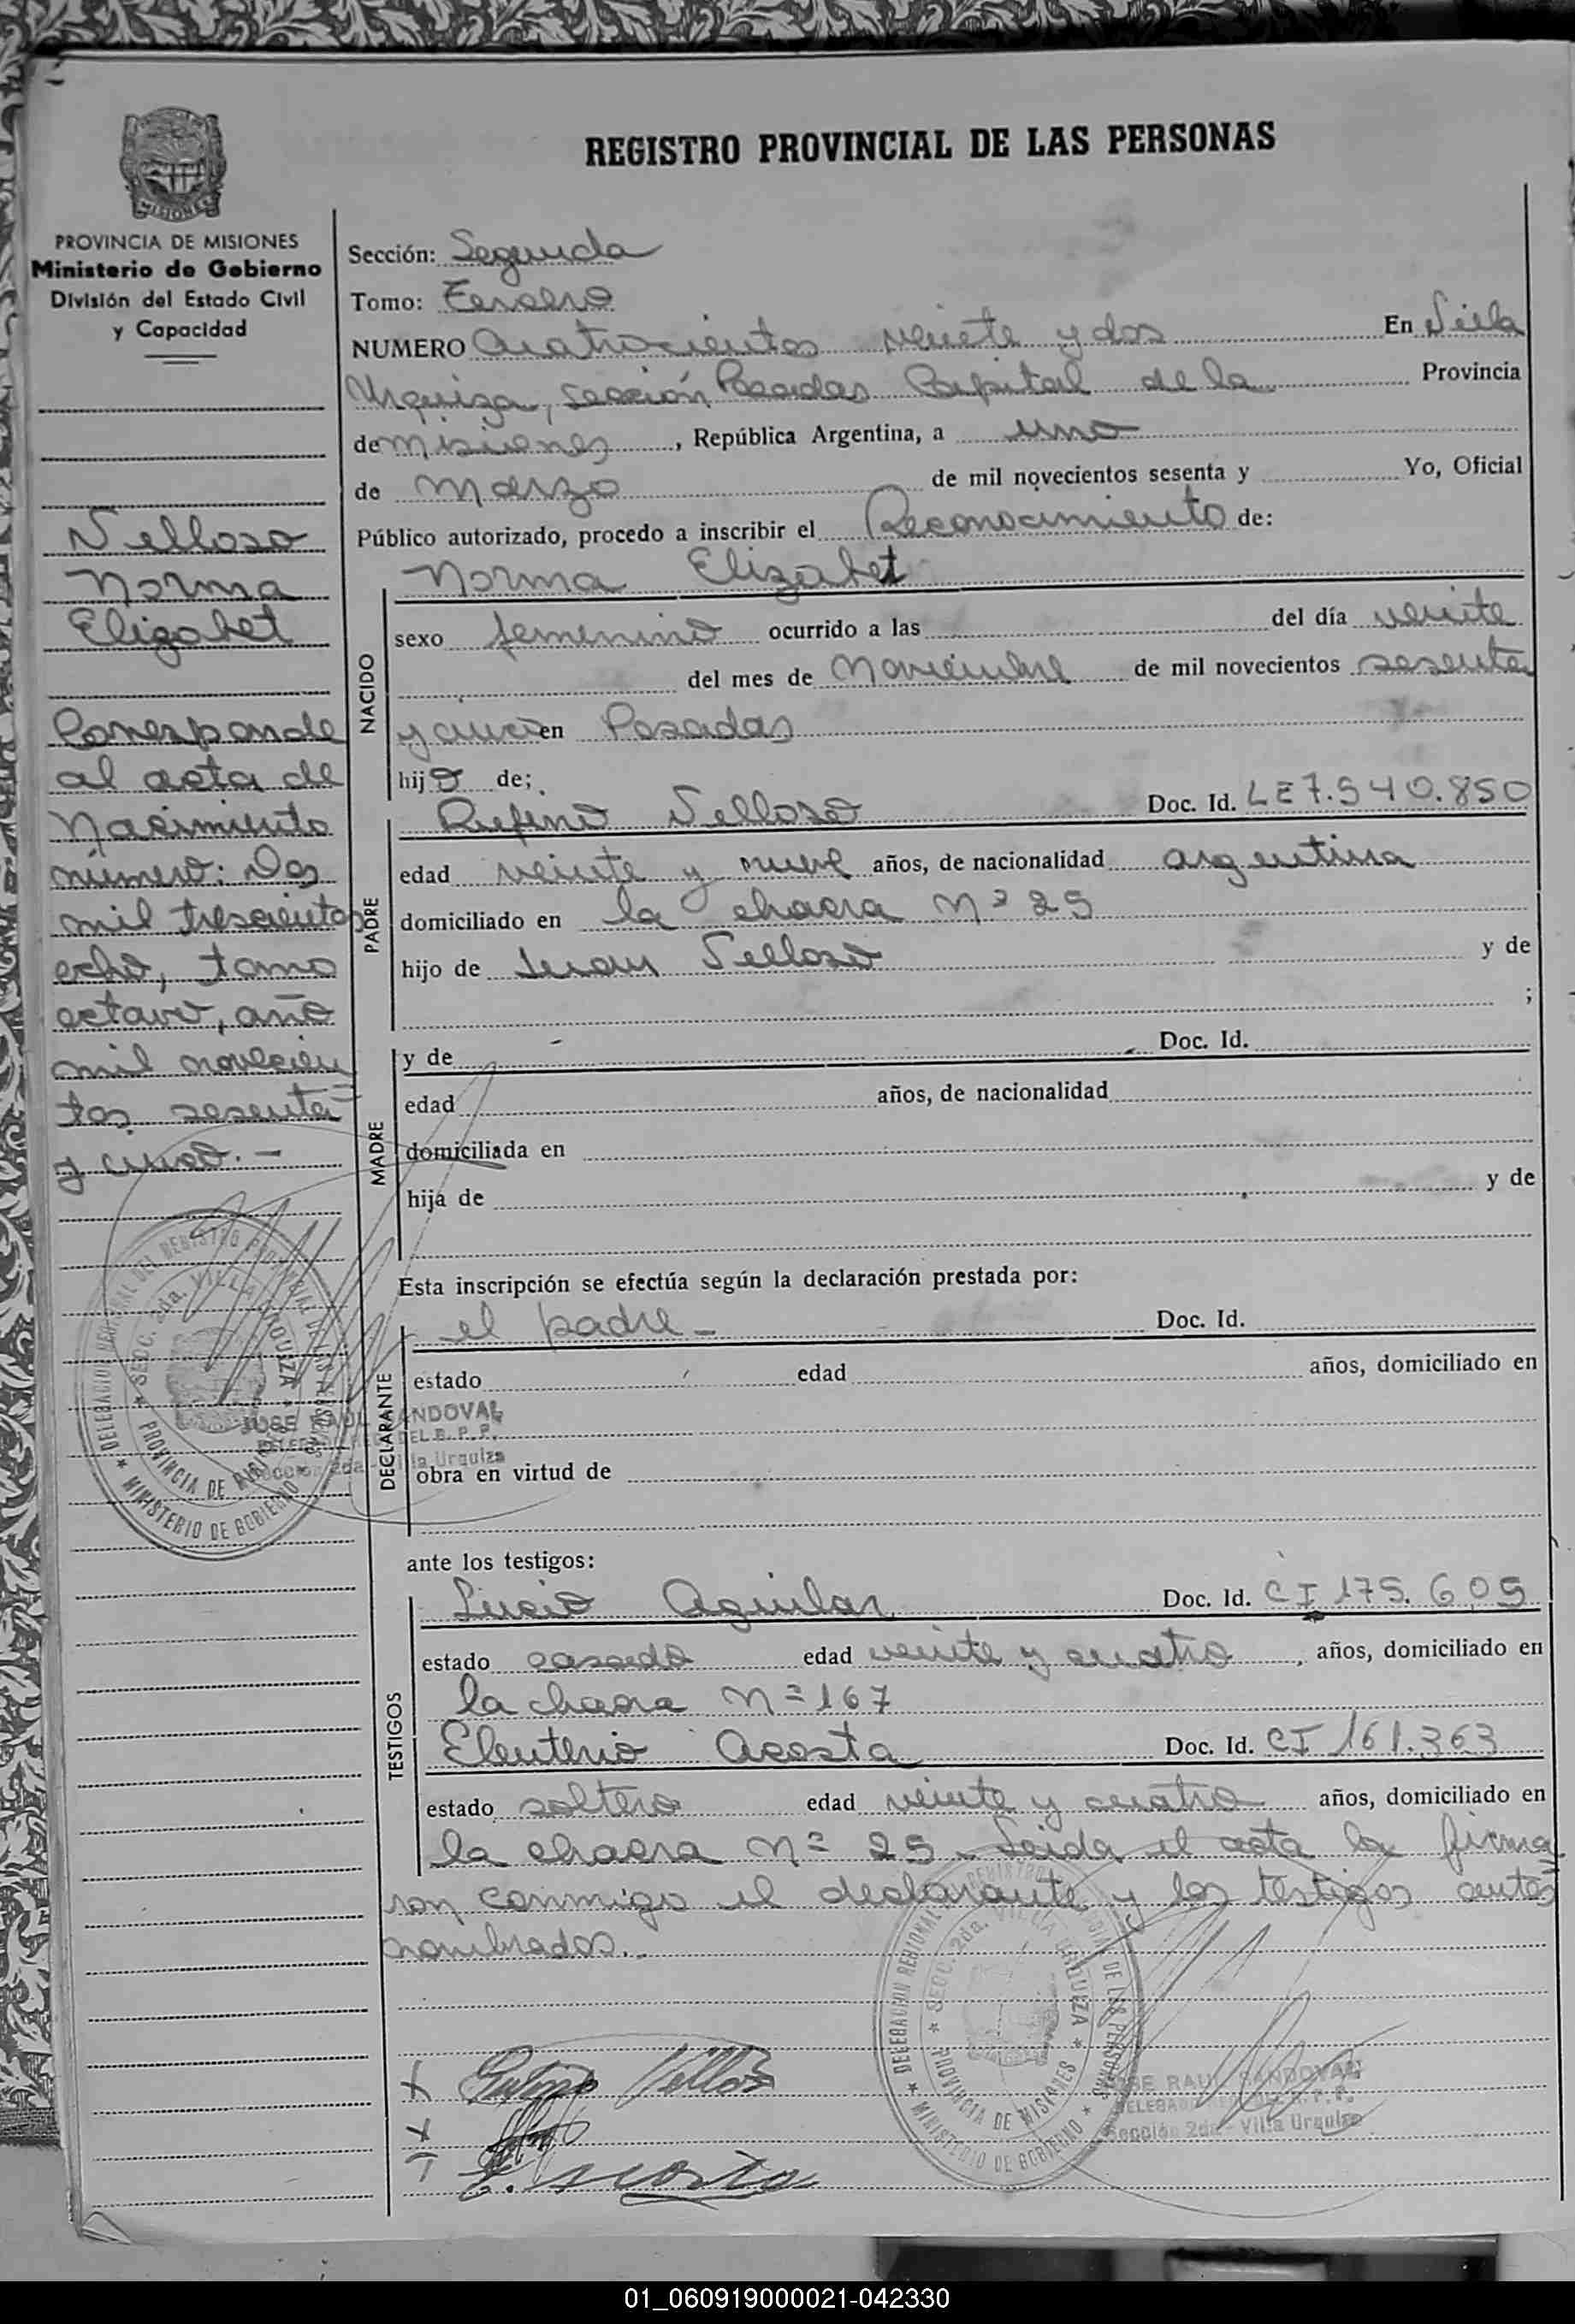 REGISTRO PROVINCIAL DE LAS PERSONAS
MISIONES
PROVINCIA DE MISIONES
Ministerio de Gobierno
División del Estado Civil
y Capacidad
Vellozo
Norma
Elizabet
Corresponde
al acta de
Nacimiento
número: Dos
mil trescientos
ocho, tomo
octavo, año
mil novecien
tos sesenta
y cinco. -
Sección: Segunda
Tomo: Tercero
NUMERO Cuatrocientos veinte y dos En Villa
Urquiza, sección Posadas Capital de la Provincia
de Misiones, República Argentina, a uno
de Marzo de mil novecientos sesenta y Yo, Oficial
Público autorizado, procedo a inscribir el Reconocimiento de:
NACIDO
Norma Elizabet
sexo femenino ocurrido a las del día veinte
del mes de Noviembre de mil novecientos sesenta
y cinco en Posadas
hijo de;
PADRE
Rufino Vellozo Doc. Id. LE 7.540.850
edad veinte y nueve años, de nacionalidad argentina
domiciliado en la chacra Nº 25
hijo de Juan Vellozo y de
;
MADRE
y de Doc. Id.
edad años, de nacionalidad
domiciliada en
hija de y de
Esta inscripción se efectúa según la declaración prestada por:
DECLARANTE
el padre - Doc. Id.
estado edad años, domiciliado en
obra en virtud de
ante los testigos:
TESTIGOS
Lucio Aguilar Doc. Id. CI 175.605
estado casado edad veinte y cuatro, años, domiciliado en
la chacra Nº 167
Eleuterio Acosta Doc. Id. CI 161.363
estado soltero edad veinte y cuatro años, domiciliado en
la chacra Nº 25. Leida el acta la firma
ron conmigo el declarante y los testigos antes
nombrados..
DELEGACION REGIONAL DEL REGISTRO PROVINCIAL DE LAS PERSONAS
SECC. 2da. VILLA URQUIZA
PROVINCIA DE MISIONES
MINISTERIO DE GOBIERNO
JOSE RAUL SANDOVAL
DEL R. P. P.
Sección 2da - Villa Urquiza
DELEGACION REGIONAL DEL REGISTRO PROVINCIAL DE LAS PERSONAS
SECC. 2da. VILLA URQUIZA
PROVINCIA DE MISIONES
MINISTERIO DE GOBIERNO
JOSE RAUL SANDOVAL
R. P. P.
Sección 2da - Villa Urquiza
E. Acosta
01_060919000021-042330